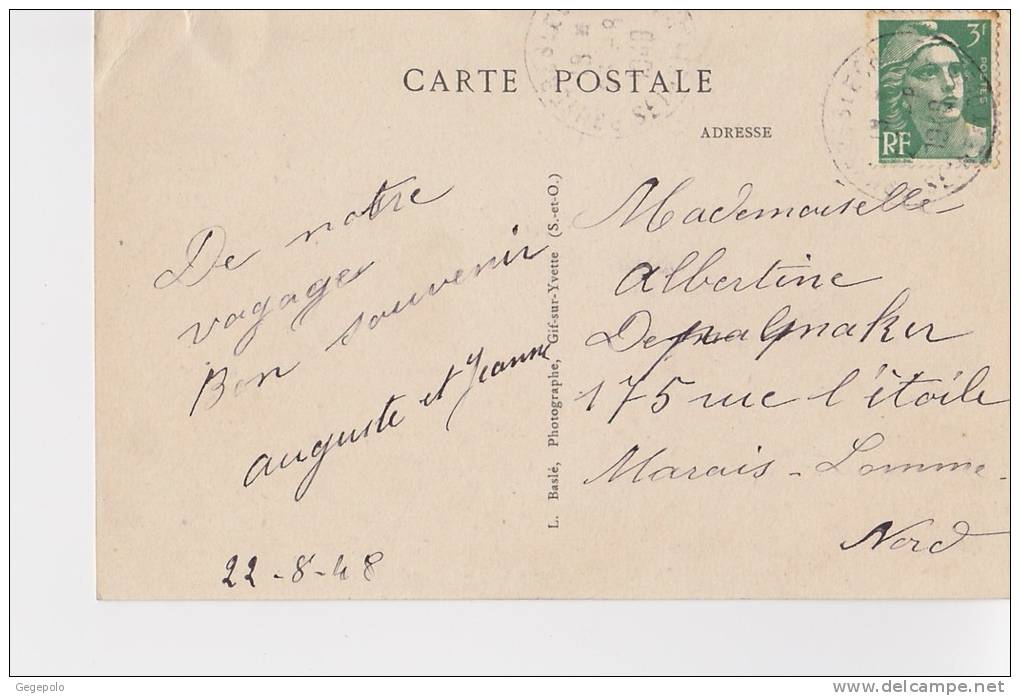 CARTE POSTALE
ADRESSE
3f
POSTES
RF
De notre
vagage
Bon souvenir
auguste et Jeanne
22-8-48
L. Baslé, Photographe, Gif-sur-Yvette (S.-et-O.)
Mademoiselle
Albertine
175 rue l'étoile
Marais - Lomme
Nord
Gegepolo
www.delcampe.net